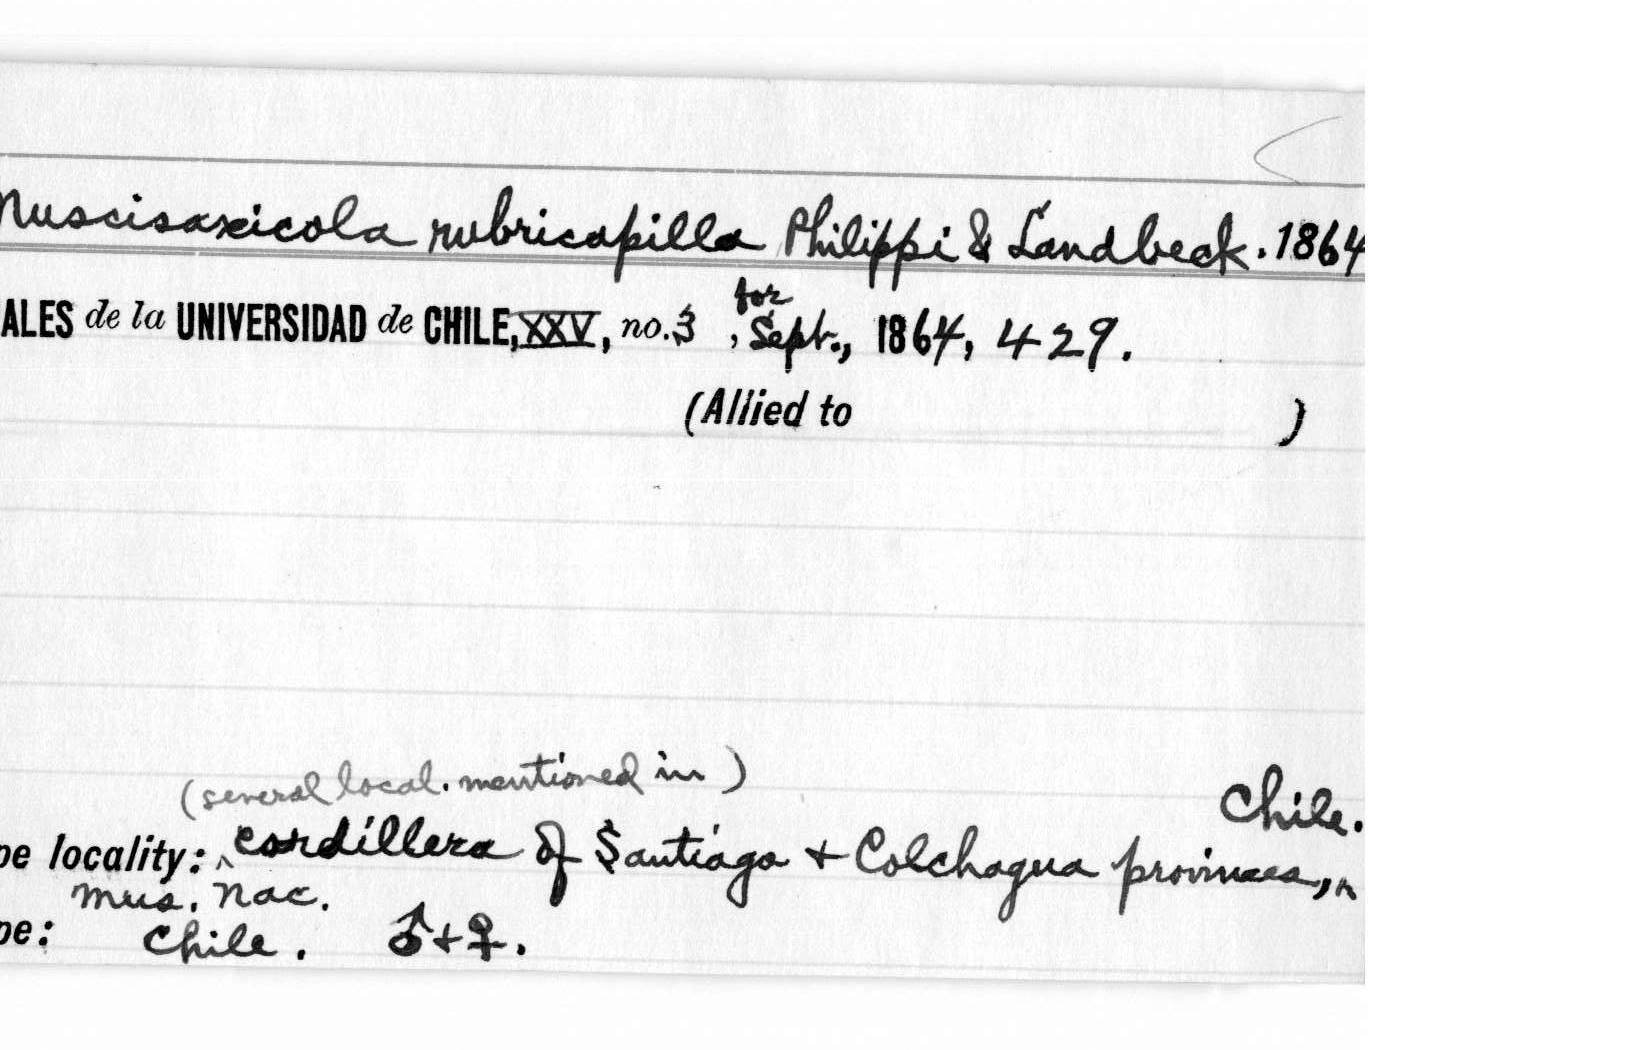 Muscisaxicola rubricapilla Philippi & Landbeck. 1864
ALES de la UNIVERSIDAD de CHILE, XXV, no. 3, for Sept., 1864, 429.
(Allied to )
(several local. mentioned in)
Chile.
pe locality: cordillera of Santiago + Colchagua provinces,
Mus. Nac.
pe: Chile. ♂+♀.